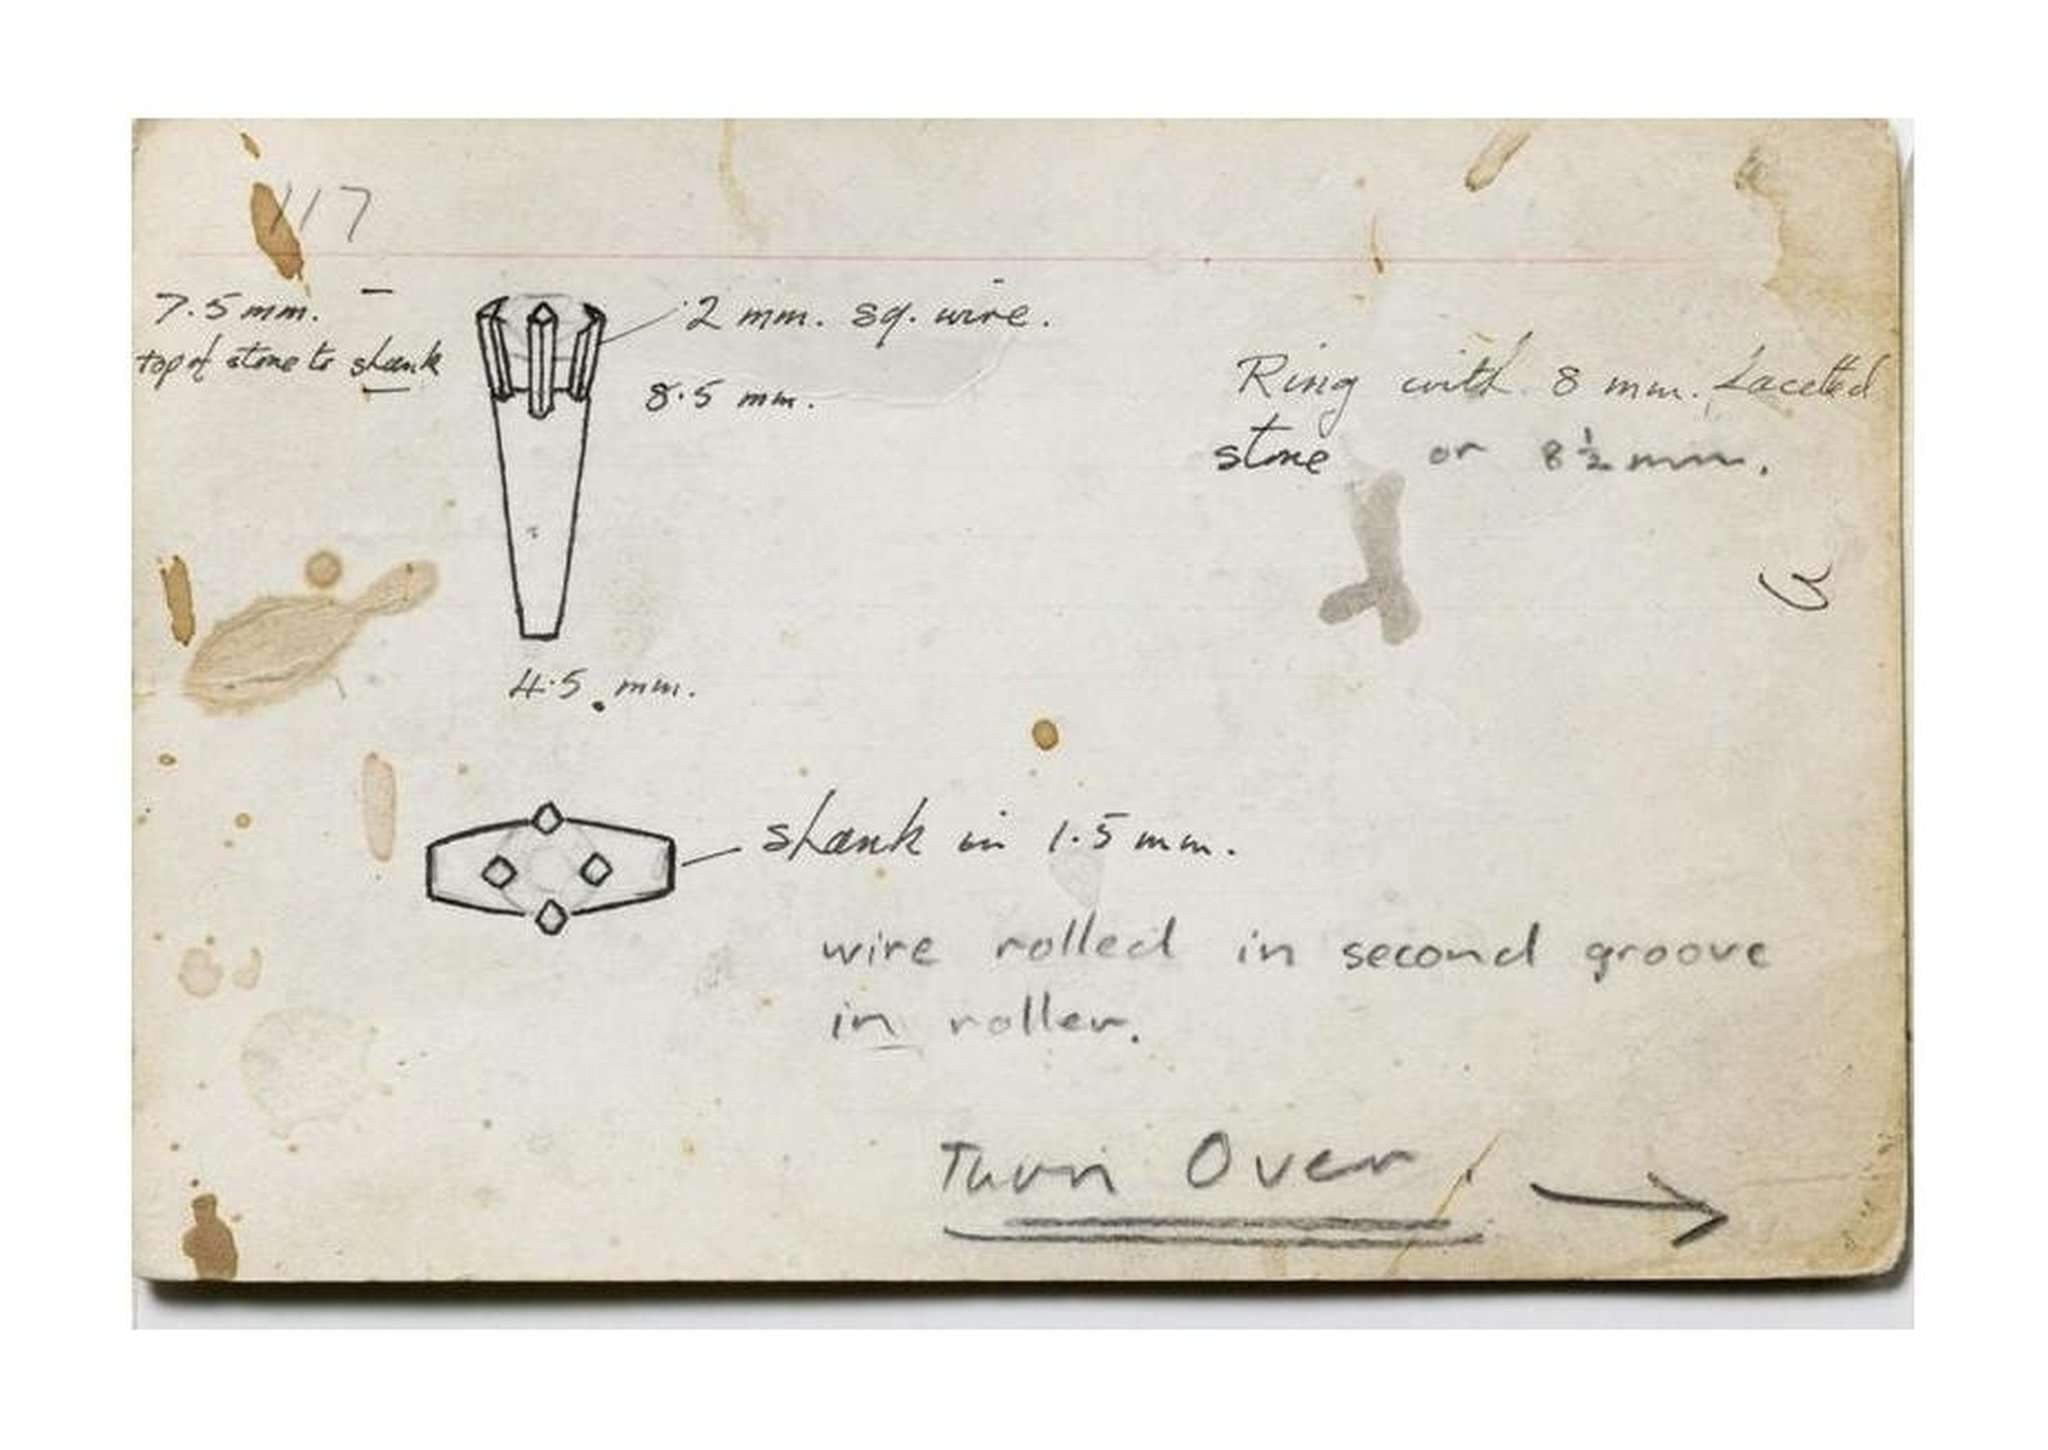 117
7.5 mm.
top of stone to shank
2 mm. sq. wire.
8.5 mm.
Ring with 8 mm. facetted
stone or 8 ½ mm.
4.5 mm.
shank in 1.5 mm.
wire rolled in second groove
in roller.
Turn Over